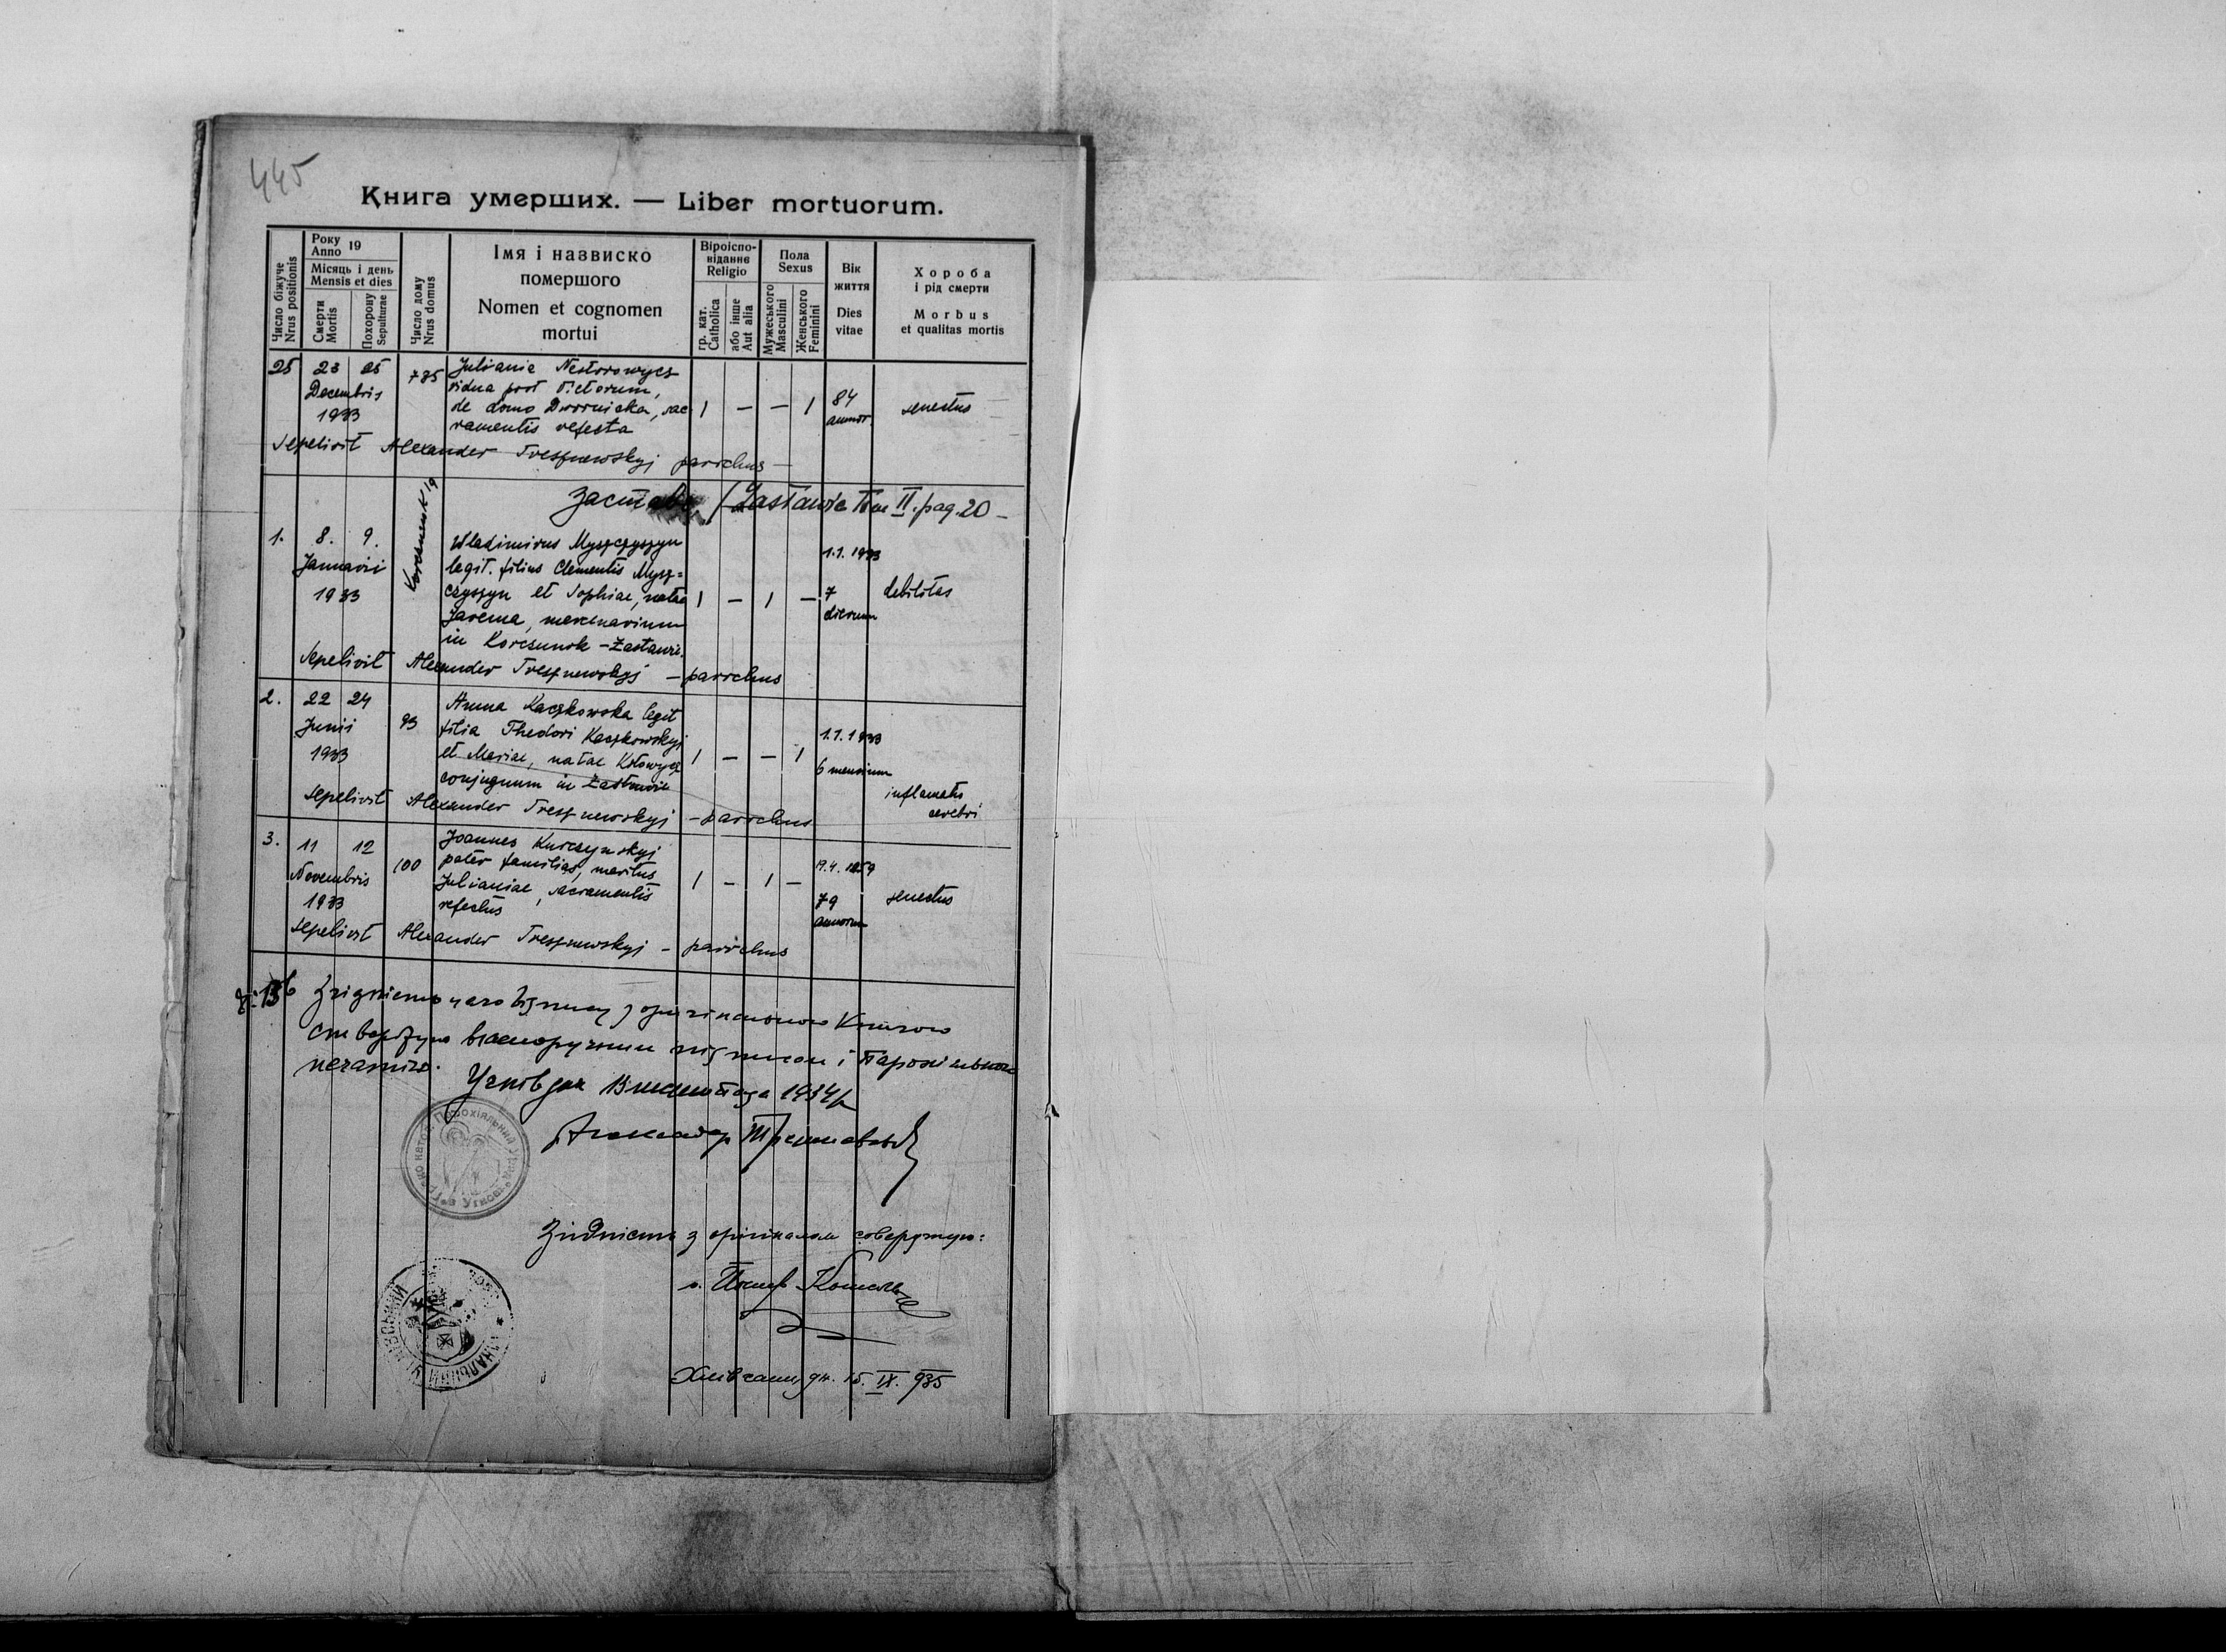 445
Книга умерших. — Liber mortuorum.
Число біжуче
Nrus positionis
Року
Anno 19
Місяць і день
Mensis et dies
Смерти
Mortis
Похорону
Sepulturae
Число дому
Nrus domus
Імя і назвиско
помершого
Nomen et cognomen
mortui
Віроіспо-
віданнє
Religio
гр. кат.
Catholica
або інше
Aut alia
Пола
Sexus
Мужеського
Masculini
Женського
Feminini
Вік
життя
Dies
vitae
Хороба
і рід смерти
Morbus
et qualitas mortis
25 23 25 735 Juliania Nestorowycz
Decembris vidua post Victorum,
1933 de domo Dwornicka, sac- 1 — — 1 84 senectus
ramentis refecta annor.
Sepelivit Alexander Tresznewskyj parochus —
Застав / Zastawie Tom II. pag. 20 —
Korczunok 19
1. 8. 9. Wladimirus Myszczyszyn 1.1. 1933
Januarii legit. filius Clementis Mysz=
1933 czyszyn et Sophiae, natae 1 — 1 — 7 debilitas
Jarema, mercenarium dierum
in Korczunok - Zastawie.
Sepelivit Alexander Tresznewskyj — parochus
2. 22 24 Anna Kaczkowska legit
Junii 93 filia Theodori Kaczkowskyj 1.1. 1933
1933 et Mariae, natae Kotowycz 1 — — 1 6 mensium
conjugum in Zastawie inflamatio
Sepelivit Alexander Tresznewskyj — parochus cerebri
3. 11 12 Joannes Kurczynskyj
Novembris 100 pater familias, maritus 19.4. 1859
1933 Julianiae, sacramentis 1 — 1 — 79 senectus
refectus annorum
Sepelivit Alexander Tresznewskyj — parochus
Ч: 136 Згідність цего відпису з оригінальною Книгою
стверджую власноручним підписом і парохіяльною
печаткою.
Угнів дня 13 листопада 1934 р
Александер Трешневський
Згідність з оригіналом стверджую:
о. Йосиф
дн. 15. IX. 935